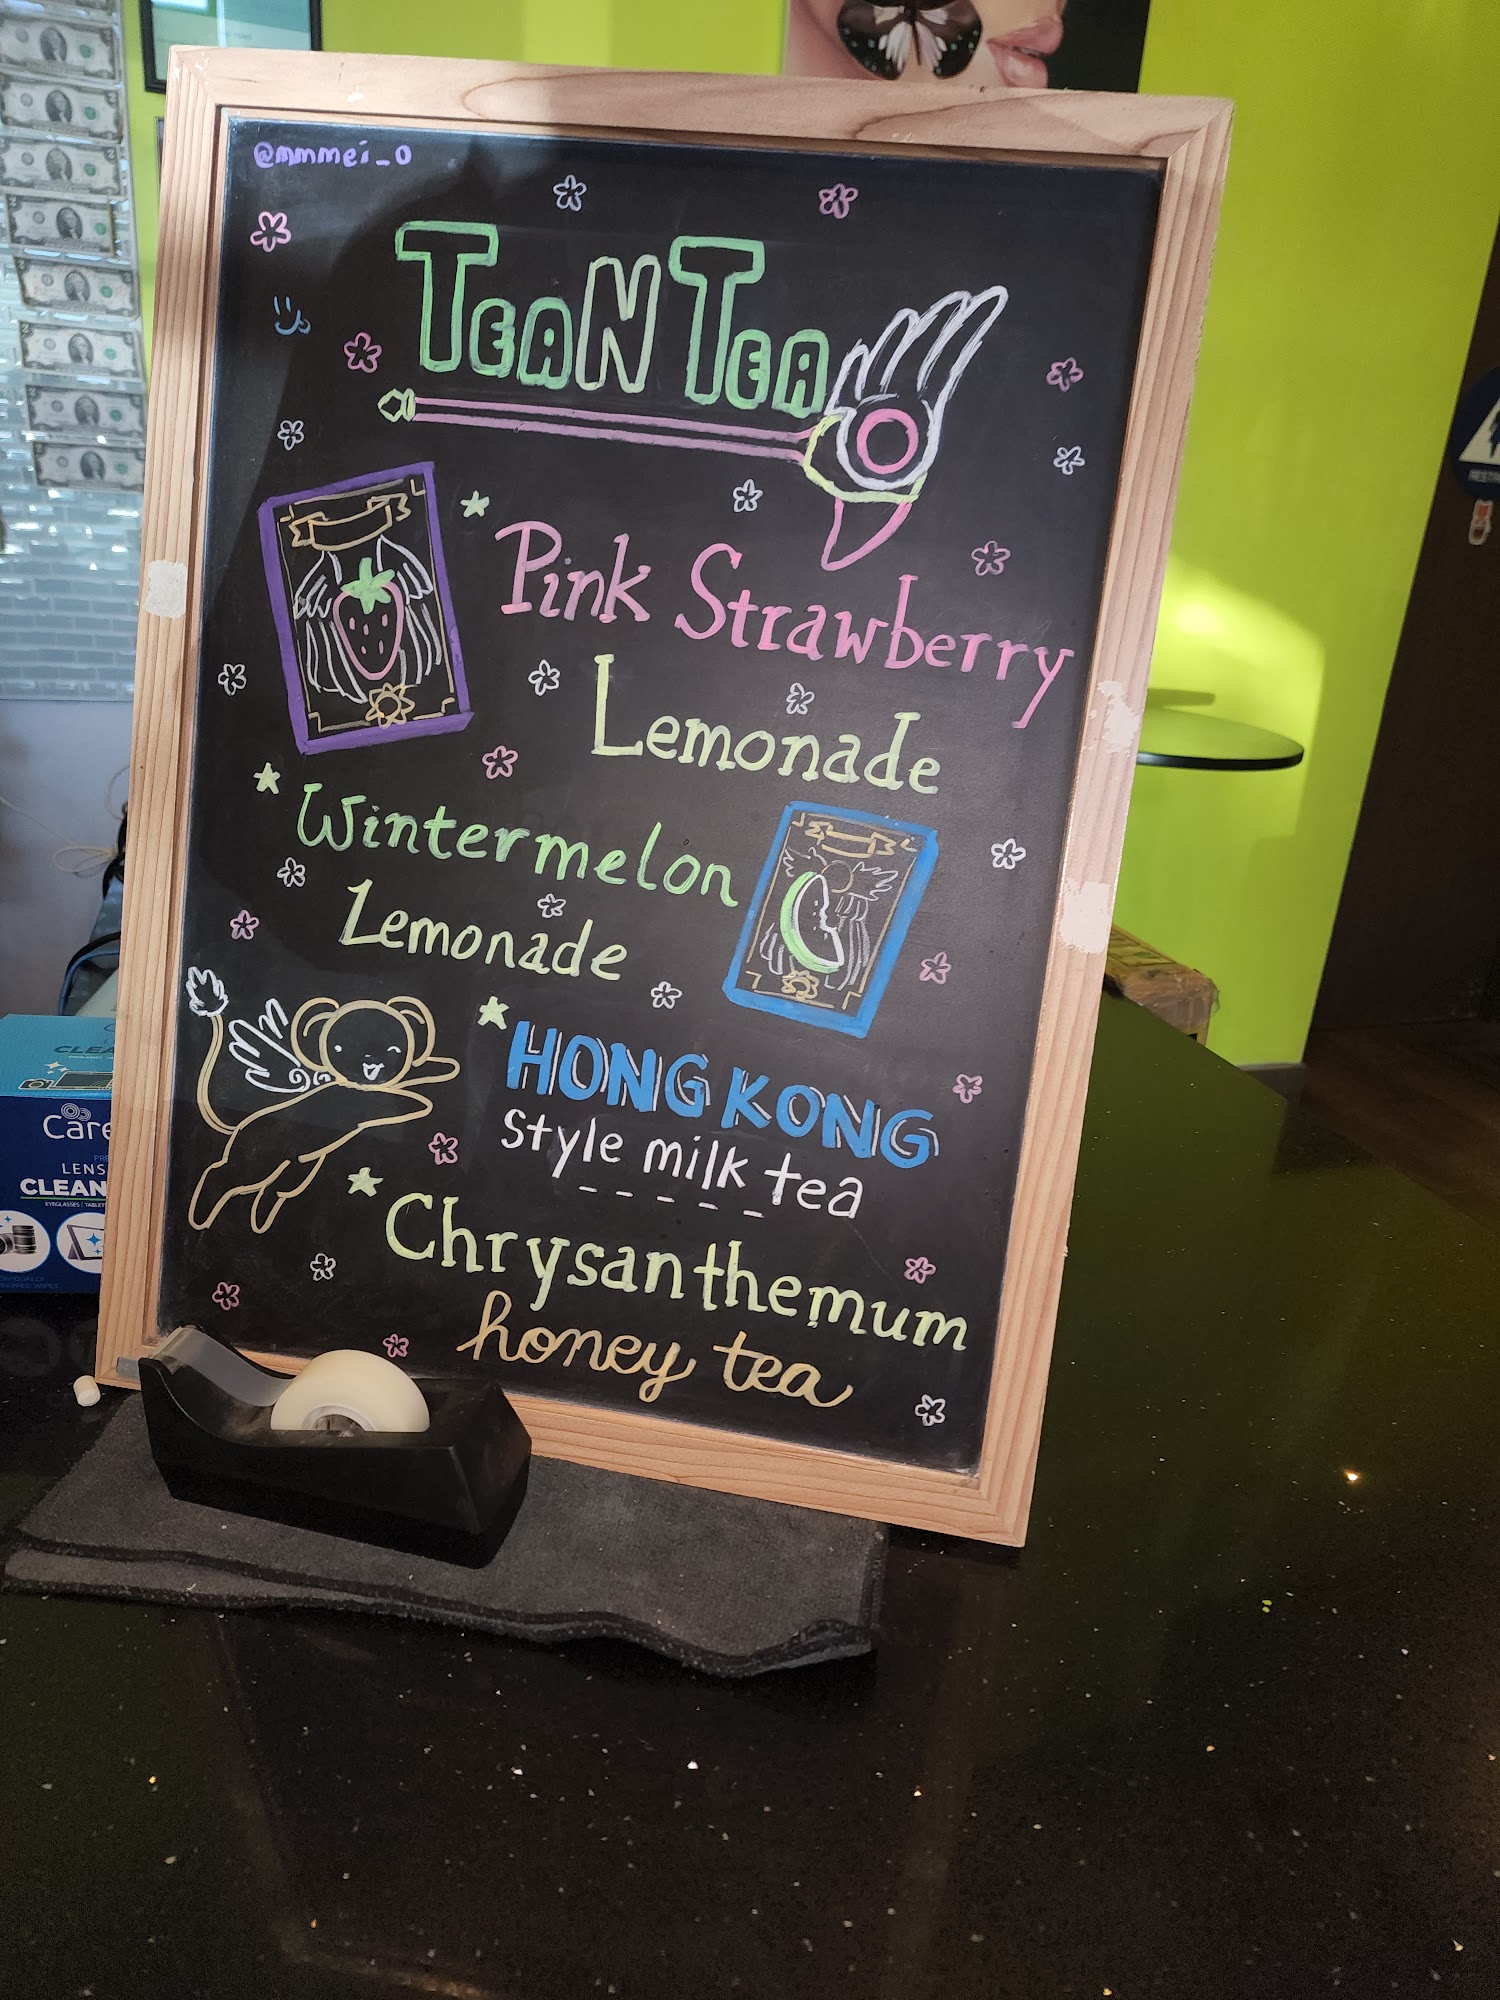 @mmmei_0
TEANTEA
Pink Strawberry
Lemonade
Wintermelon
Lemonade
HONG KONG
style milk tea
Chrysanthemum
honey tea
CLEA
Care
LENS
CLEAN